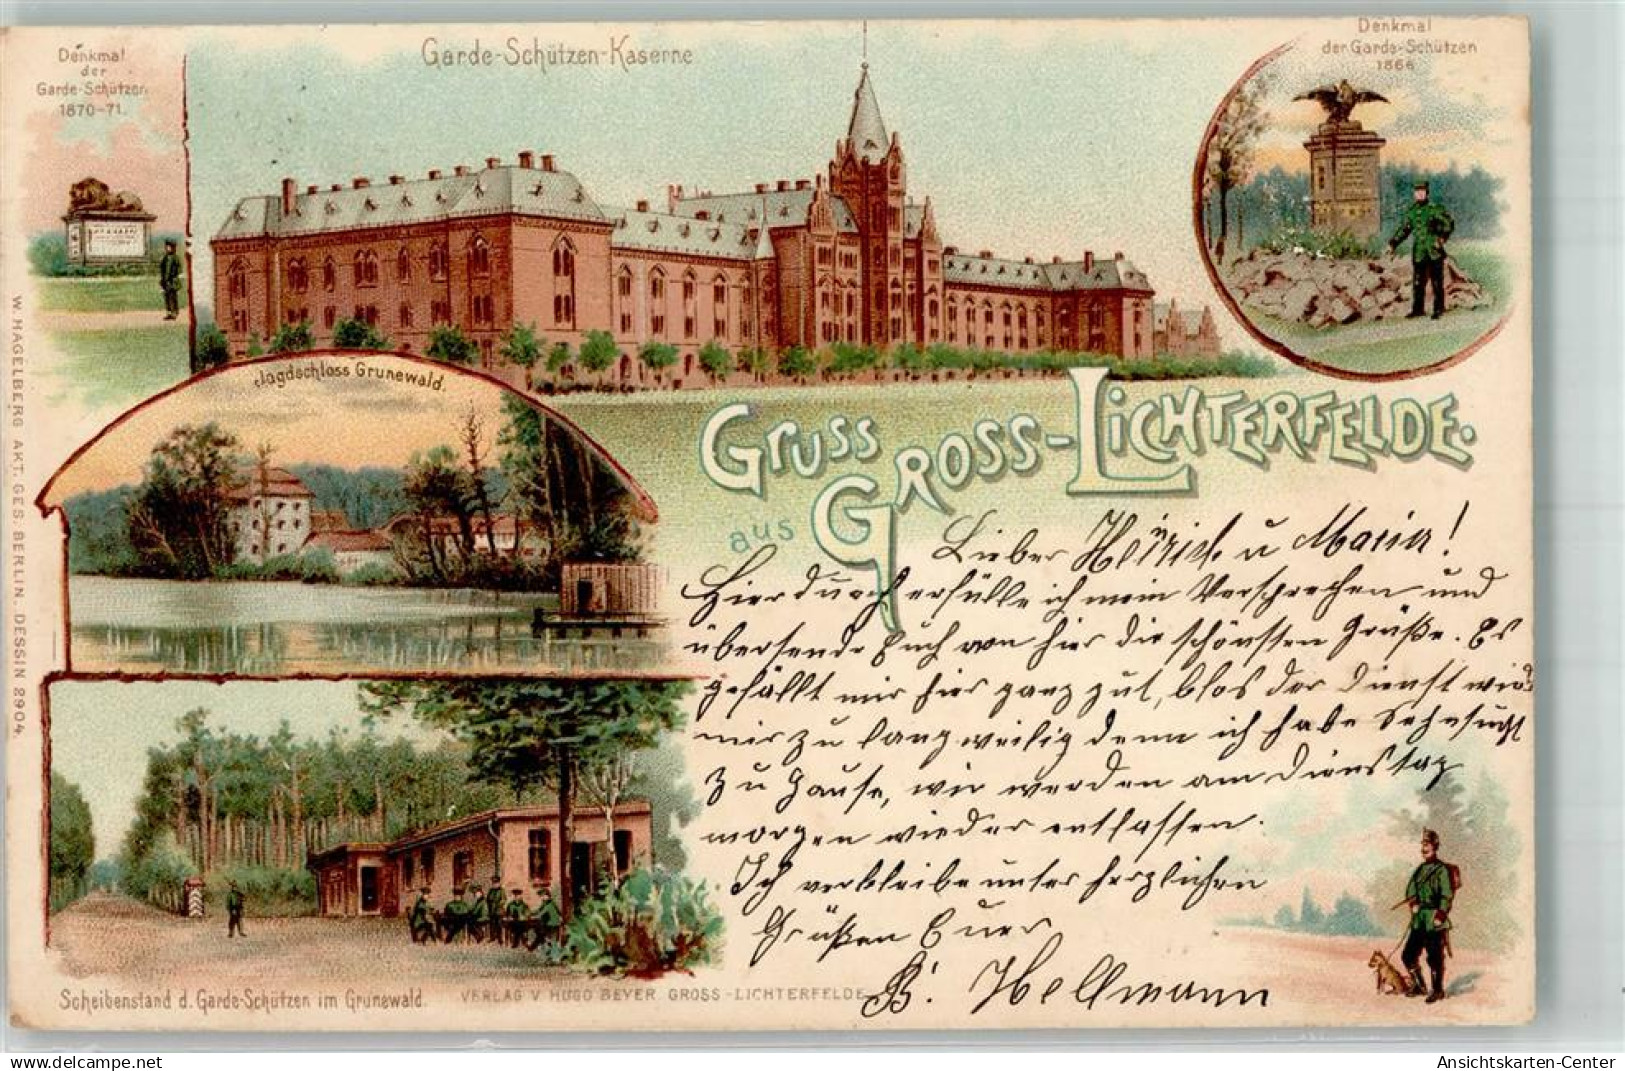 Denkmal
der
Garde-Schützen
1870-71.
Garde-Schützen-Kaserne
Denkmal
der Garde-Schützen
1866
Jagdschloss Grunewald.
Gruss
aus Gross-Lichterfelde.
Lieber Heinrich u Maria!
Hierdurch erfülle ich mein Versprechen und
übersende Euch von hier die schönsten Grüße. Es
gefällt mir hier ganz gut, blos der Dienst wird
mir zu langweilig denn ich habe Sehnsucht
zu Hause, wir werden am Dienstag
morgen wieder entlassen.
Ich verbleibe unter herzlichen
Grüßen Euer
B. Hellmann
Scheibenstand d. Garde-Schützen im Grunewald.
VERLAG V HUGO BEYER GROSS-LICHTERFELDE
W. HAGELBERG AKT. GES. BERLIN. DESSIN 2904.
www.oldthing.de
Ansichtskarten-Center